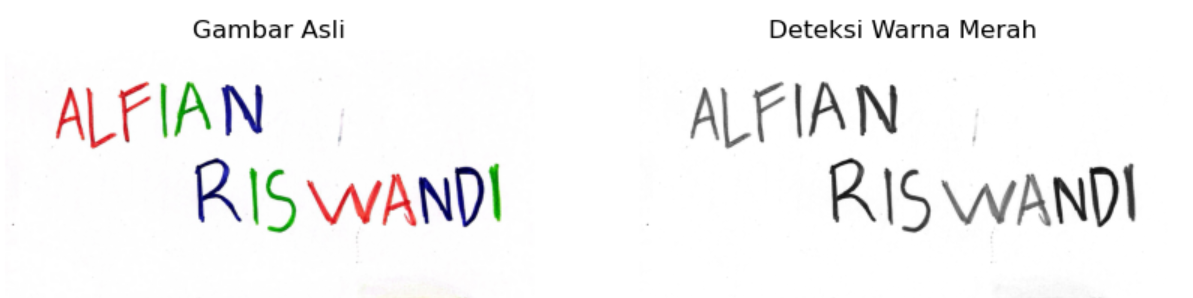 Gambar Asli
ALFIAN
RISWANDI
Deteksi Warna Merah
ALFIAN
RISWANDI